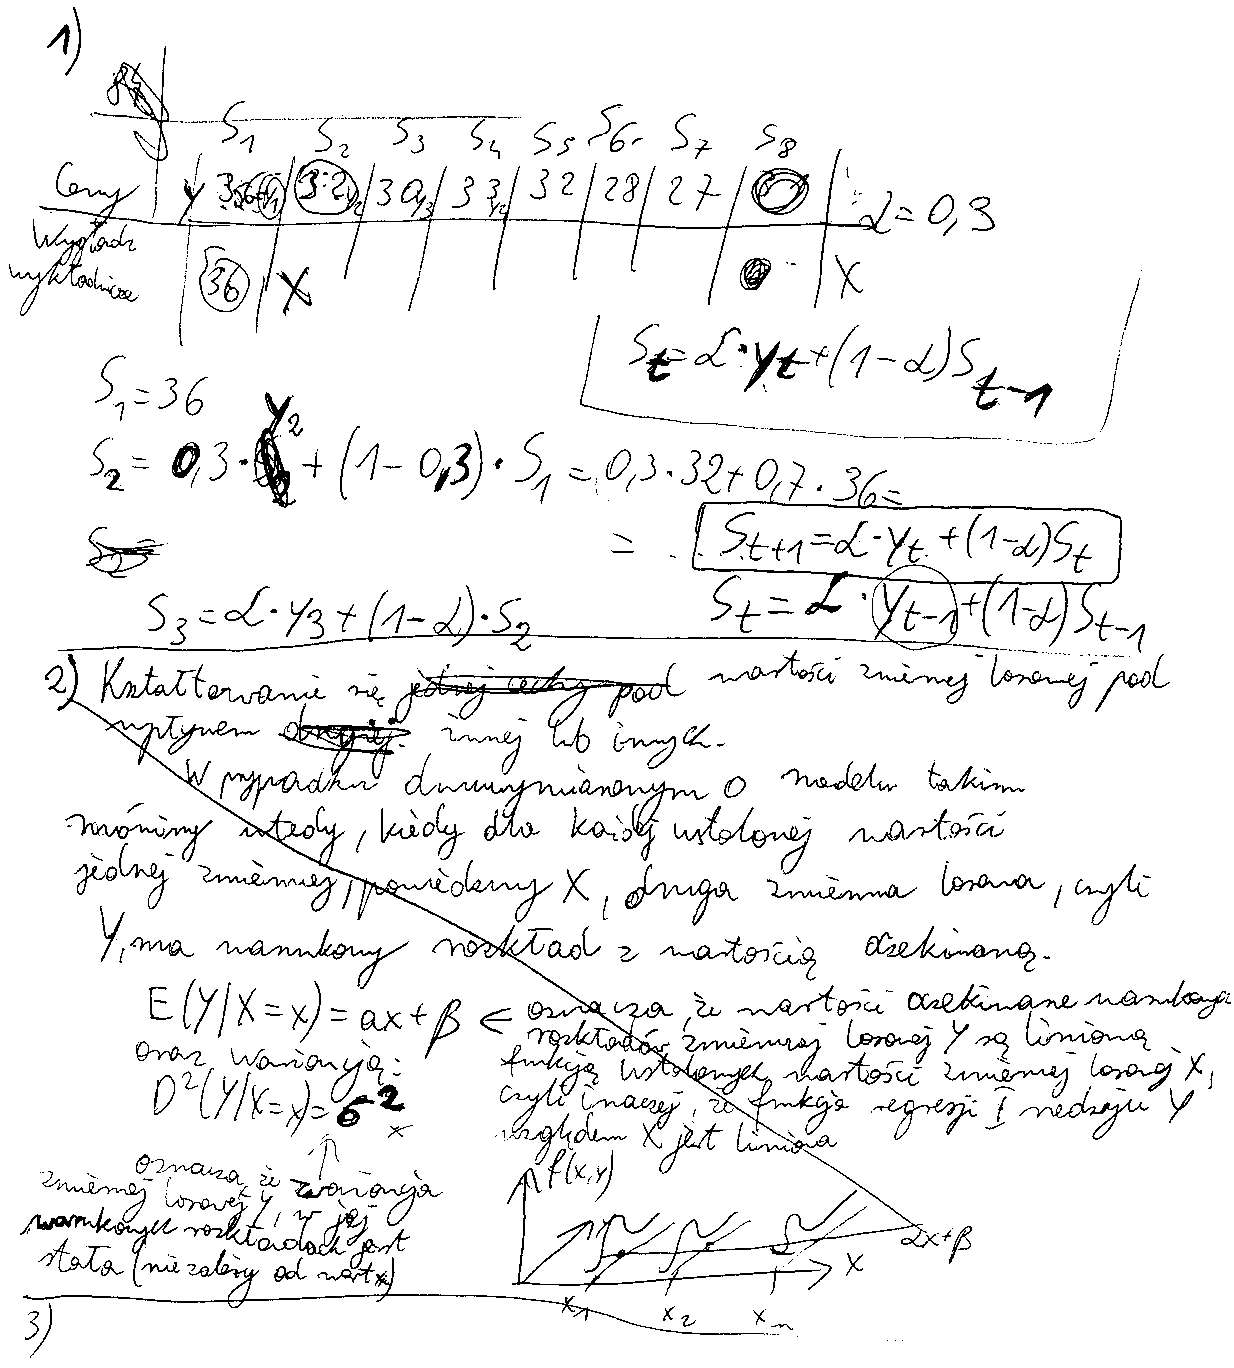 1)
S1 S2 S3 S4 S5 S6 S7 S8
Ceny y 36 32 30 33 32 28 27 α=0,3
Wygładz
wykładnicze 36 X X
St=α·yt+(1-α)St-1
S1=36
S2=0,3·y2+(1-0,3)·S1=0,3·32+0,7·36=
= St+1=α·yt+(1-α)St
S3=α·y3+(1-α)·S2 St=α·yt-1+(1-α)St-1
2) Kształtowanie się wartości zmiennej losowej pod
wpływem innej lub innych.
W przypadku dwuwymiarowym o modelu takim
mówimy wtedy, kiedy dla każdej ustalonej wartości
jednej zmiennej, powiedzmy X, druga zmienna losowa, czyli
Y, ma warunkowy rozkład z wartością oczekiwaną.
E(Y/X=x)=αx+β ← oznacza, że wartości oczekiwane warunkowych
rozkładów zmiennej losowej Y są liniową
oraz wariancją: funkcją ustalonych wartości zmiennej losowej X,
D²(Y/X=x)=σ² czyli inaczej, że funkcja regresji I rodzaju Y
x względem X jest liniowa
oznacza, że wariancja
zmiennej losowej Y, w jej
warunkowych rozkładach jest
stała (nie zależy od wart x)
f(x,y)
αx+β
X
x1 x2 xn
3)